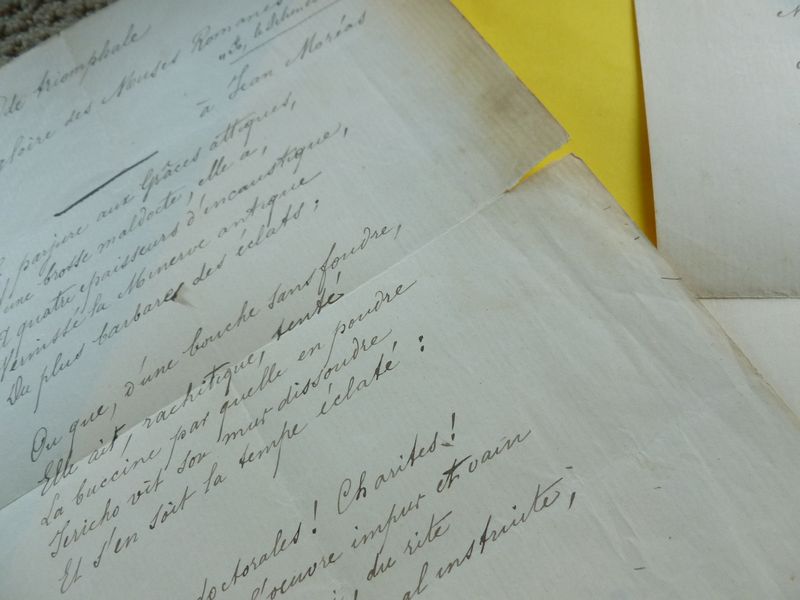 de triomphale
gloire des Muses Romanes
à Jean Moréas
parjure aux Grâces attiques,
une brosse maldocte, elle a,
quatre épaisseurs d'incaustique,
Vernissé la Minerve antique
Du plus barbares des éclats;
Ou que, d'une bouche sans foudre,
Elle ait, rachitique, tenté
La buccine par quelle en poudre
Jéricho vit son mur dissoudre
Et s'en soit la tempe éclaté:
doctorales! Charites!
l'oeuvre impur et vain
du rite
al instruite,